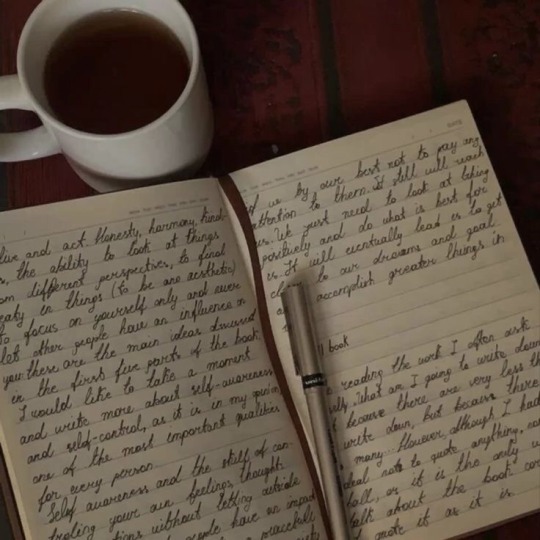 live and act. Honesty, harmony, kind-
the ability to look at things
different perspectives, to find
beauty in things (to be one aesthetic)
to focus on yourself only and never
let other people have an influence on
you: these are the main ideas discussed
in the first five parts of the book.
I would like to take a moment
and write more about self-awareness
and self-control, as it is in my opinion
one of the most important qualities
for every person.
Self awareness and the skill of con-
troling your own feelings, thoughts
without letting outside
people have an impact
peacefull
DATE
if us by our best not to pay any
attention to them. It still will reach
us. We just need to look at things
positively and do what is best for
us. It will eventually lead us to get
to our dreams and goal
accomplish greater things in
book
reading the work I often ask
What am I going to write down
because there are very less th
write down, but because there
many... However, although I had
not to quote anything, no
as it is the only w
talk about the book
quote it as it is.